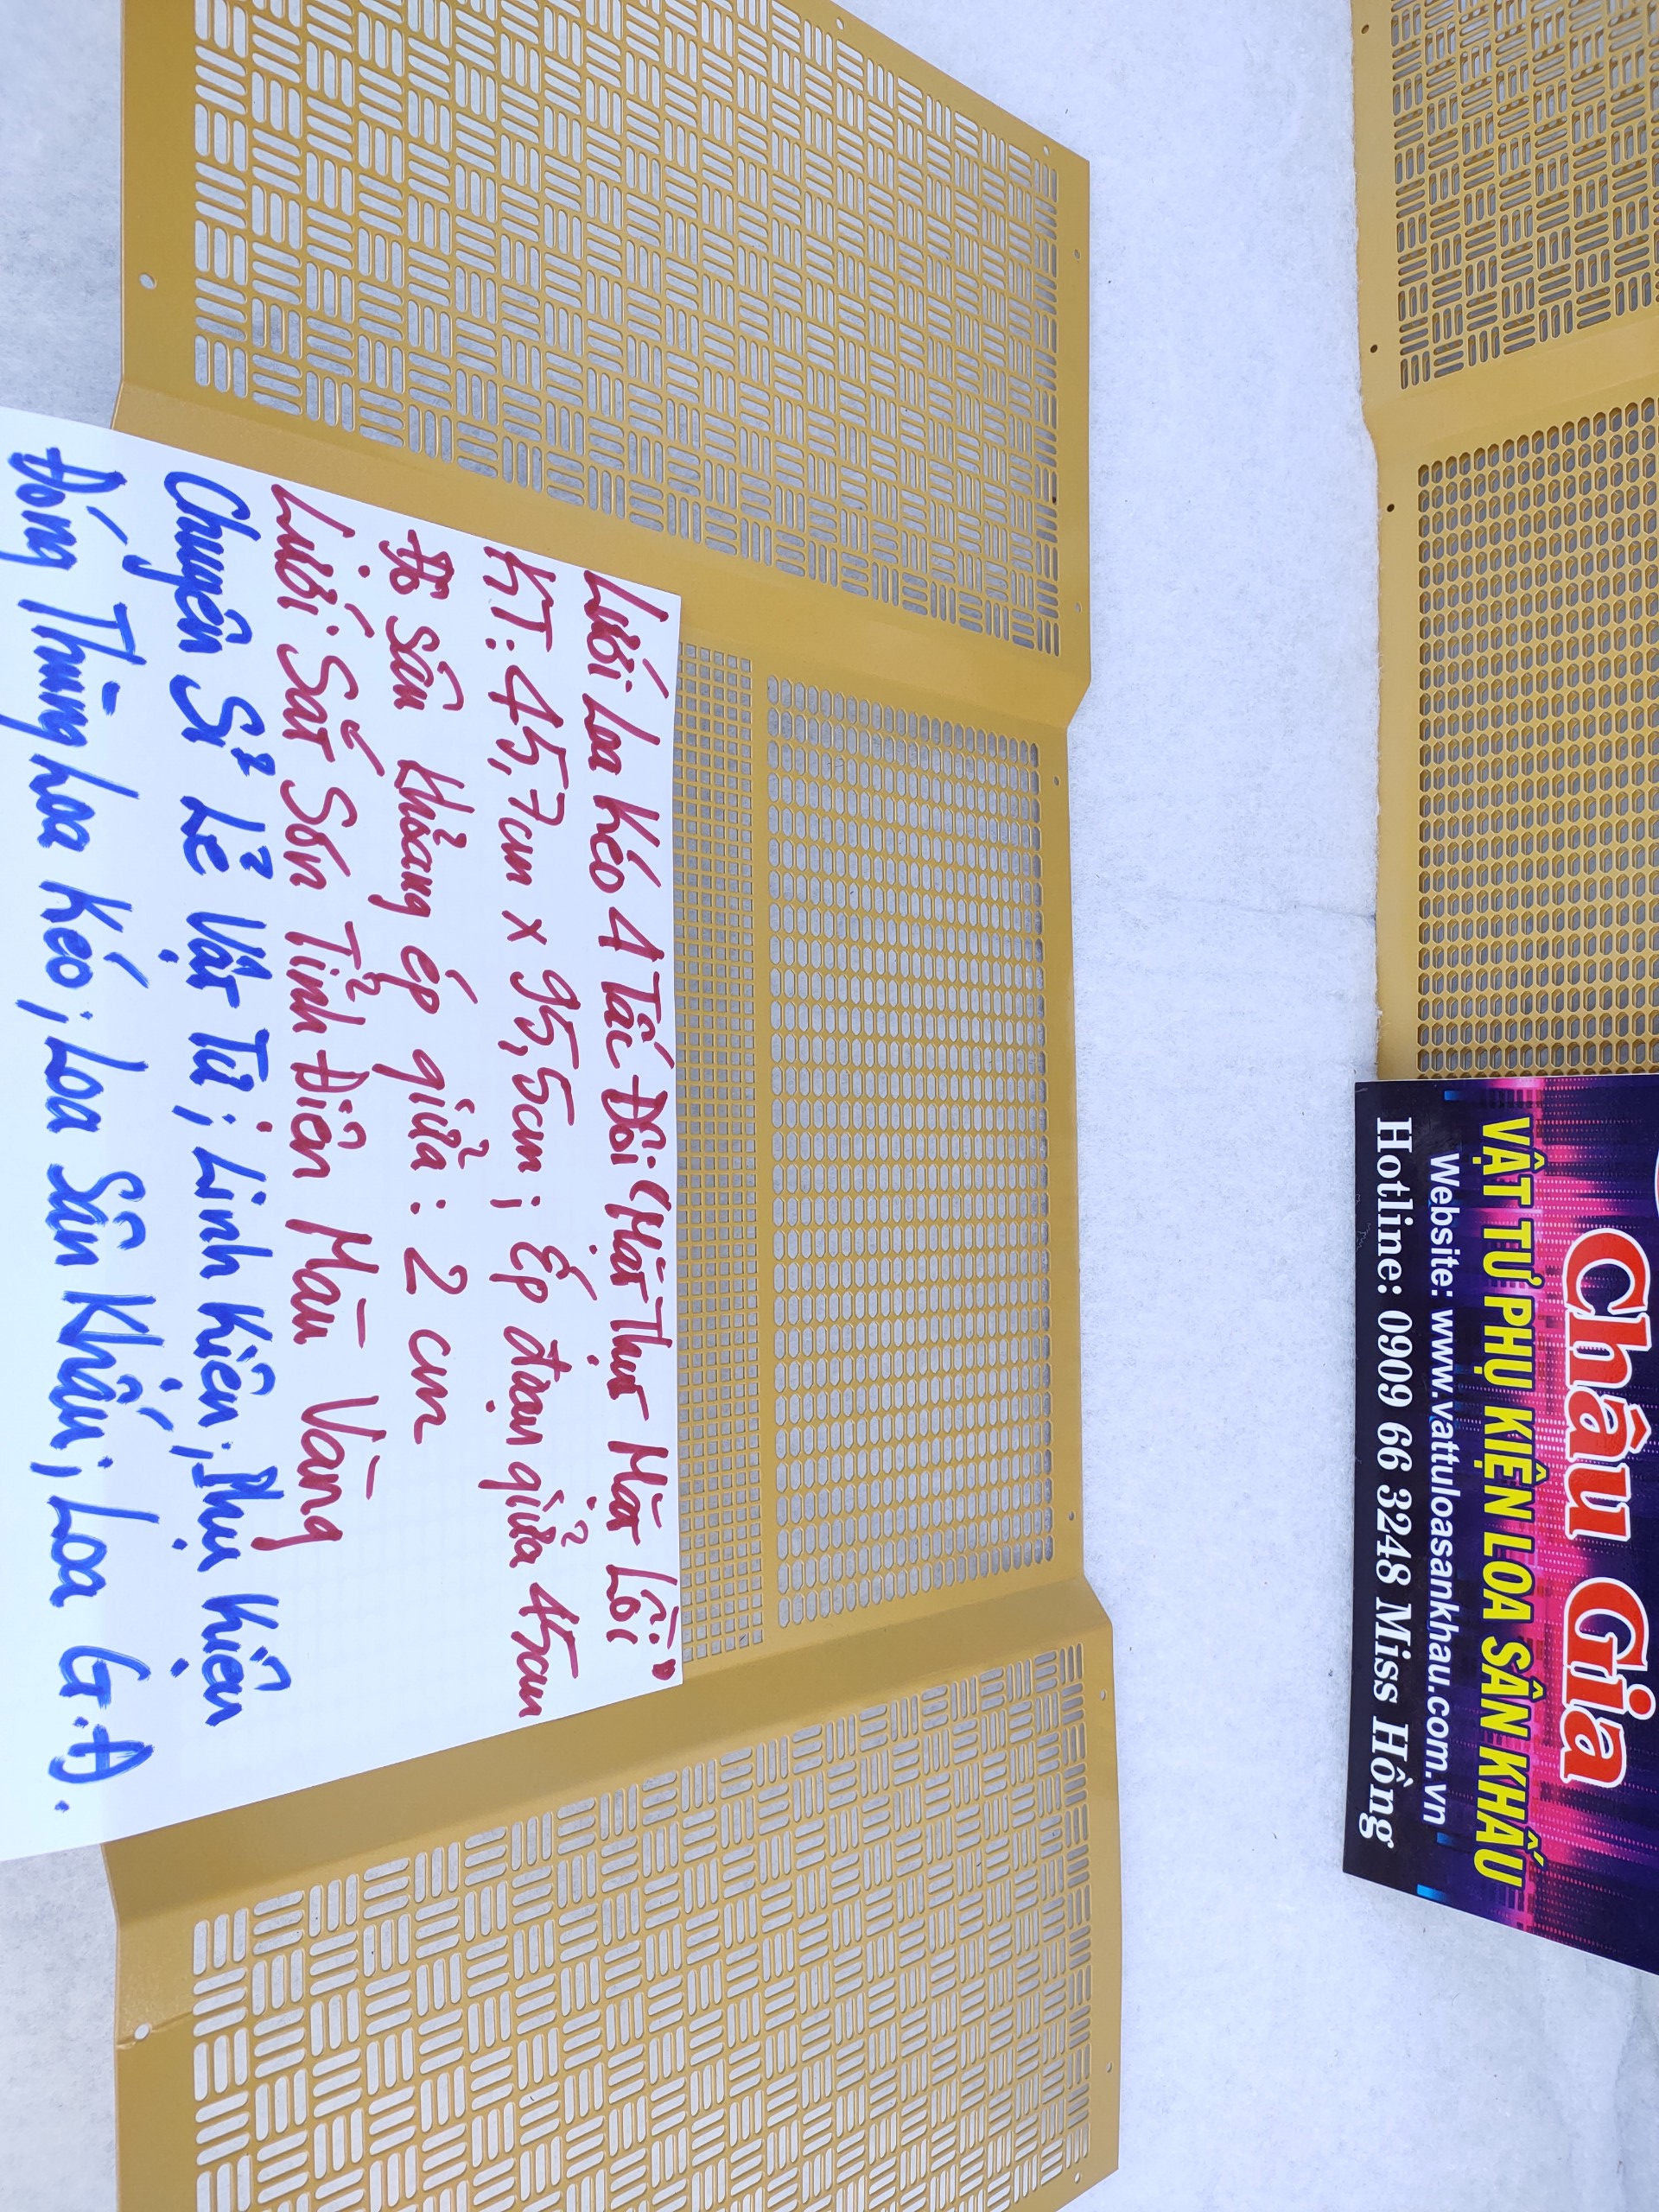 Lưới Loa Kéo 4 Tấc Đôi "Mặt Thụt Mặt Lồi"
KT: 45,7cm x 95,5cm; Ép đoạn giữa 45cm
Độ sâu khoảng ép giữa: 2 cm
Lưới Sắt Sơn Tĩnh Điện Màu Vàng
Chuyên Sỉ Lẻ Vật Tư; Linh Kiện; Phụ Kiện
Đóng Thùng Loa Kéo; Loa Sân Khấu; Loa G.Đ.
Châu Gia
VẬT TƯ PHỤ KIỆN LOA SÂN KHẤU
Website: www.vattuloasankhau.com.vn
Hotline: 0909 66 3248 Miss Hồng